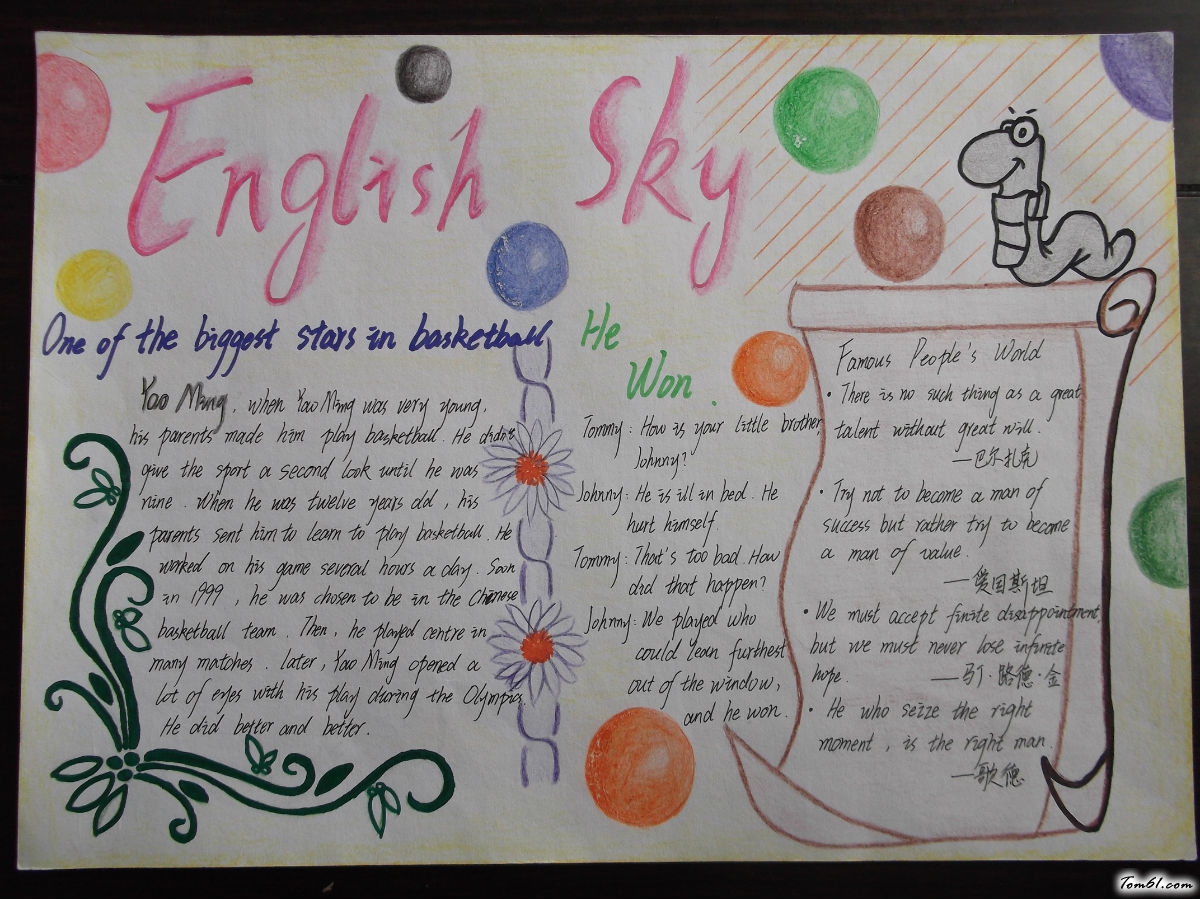 English Sky
One of the biggest stars in basketball
Yao Ming, when Yao Ming was very young,
his parents made him play basketball. He didn't
give the sport a second look until he was
nine. When he was twelve years old, his
parents sent him to learn to play basketball. He
worked on his game several hours a day. Soon
in 1999, he was chosen to be in the Chinese
basketball team. Then, he played centre in
many matches. later, Yao Ming opened a
lot of eyes with his play during the Olympics.
He did better and better.
He
Won.
Tommy: How is your little brother,
Johnny?
Johnny: He is ill in bed. He
hurt himself.
Tommy: That's too bad. How
did that happen?
Johnny: We played who
could lean furthest
out of the window,
and he won.
Famous People's World
• There is no such thing as a great
talent without great will.
—巴尔扎克
• Try not to become a man of
success but rather try to become
a man of value.
—爱因斯坦
• We must accept finite disappointment,
but we must never lose infinite
hope. —马丁·路德·金
• He who seize the right
moment, is the right man.
—歌德
Tom61.com